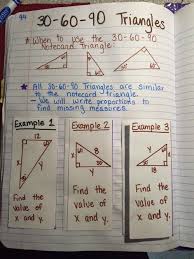 94 30-60-90 Triangles
* When to use the 30-60-90
Notecard Triangle:
* All 30-60-90 Triangles are similar
to the notecard triangle.
- We will write proportions to
find missing measures.
Example 1
Example 2
Example 3
12
y
x
8
Find
the
value
of x
and y.
Find
the
value of
x and y.
Find
the
value of
x and y.